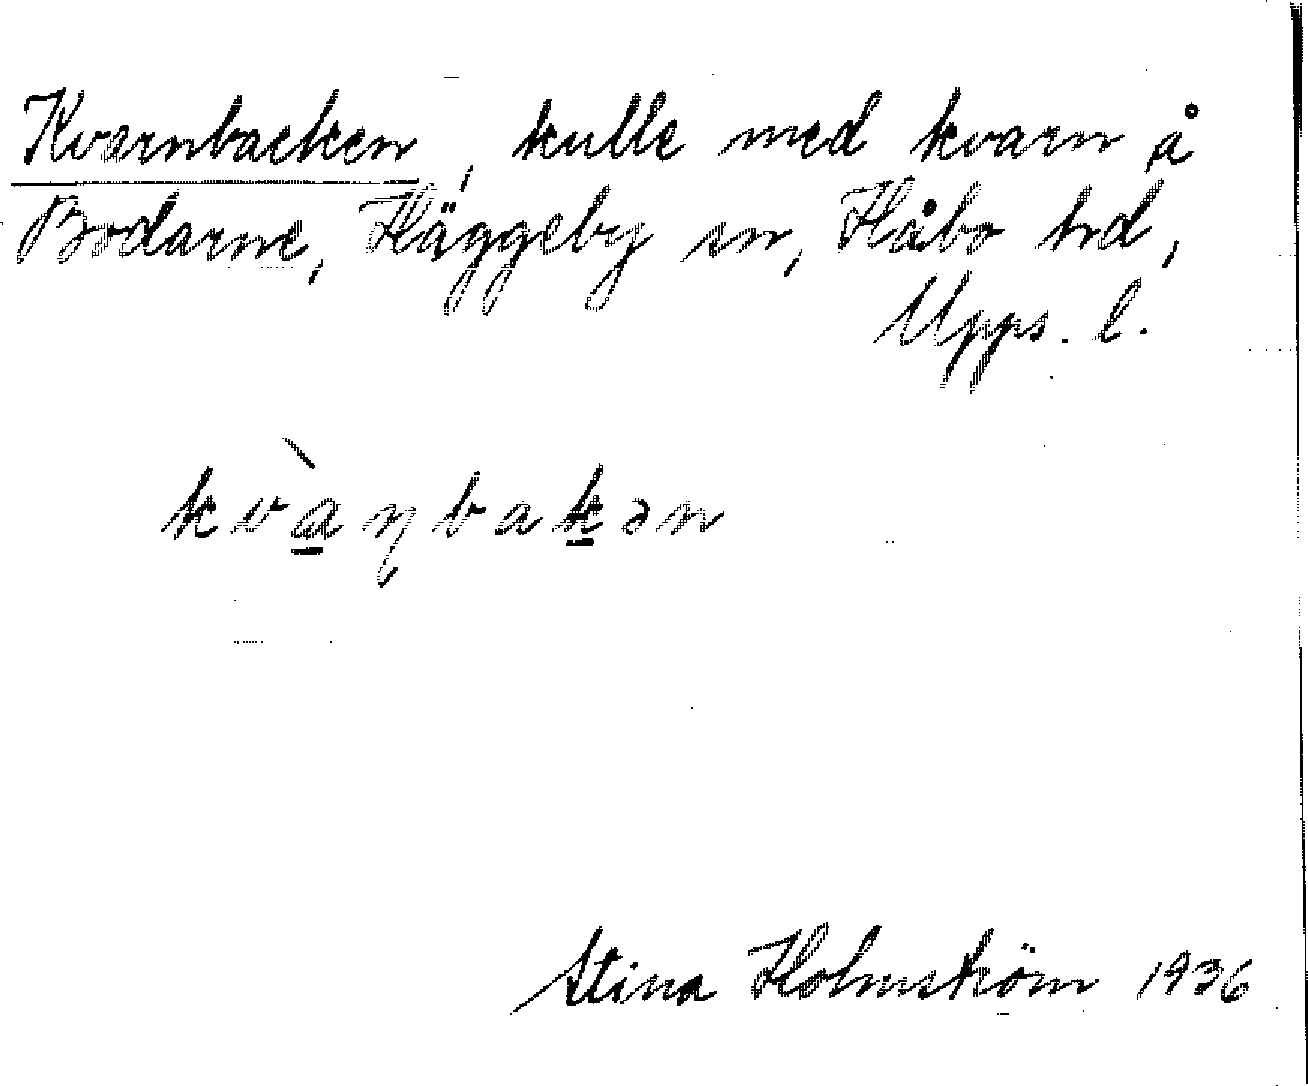 Kvarnbacken, kulle med kvarn å
Bodarne, Häggeby sn, Håbo hd,
Upps. l.
kvàɳbakən
Stina Holmström 1936